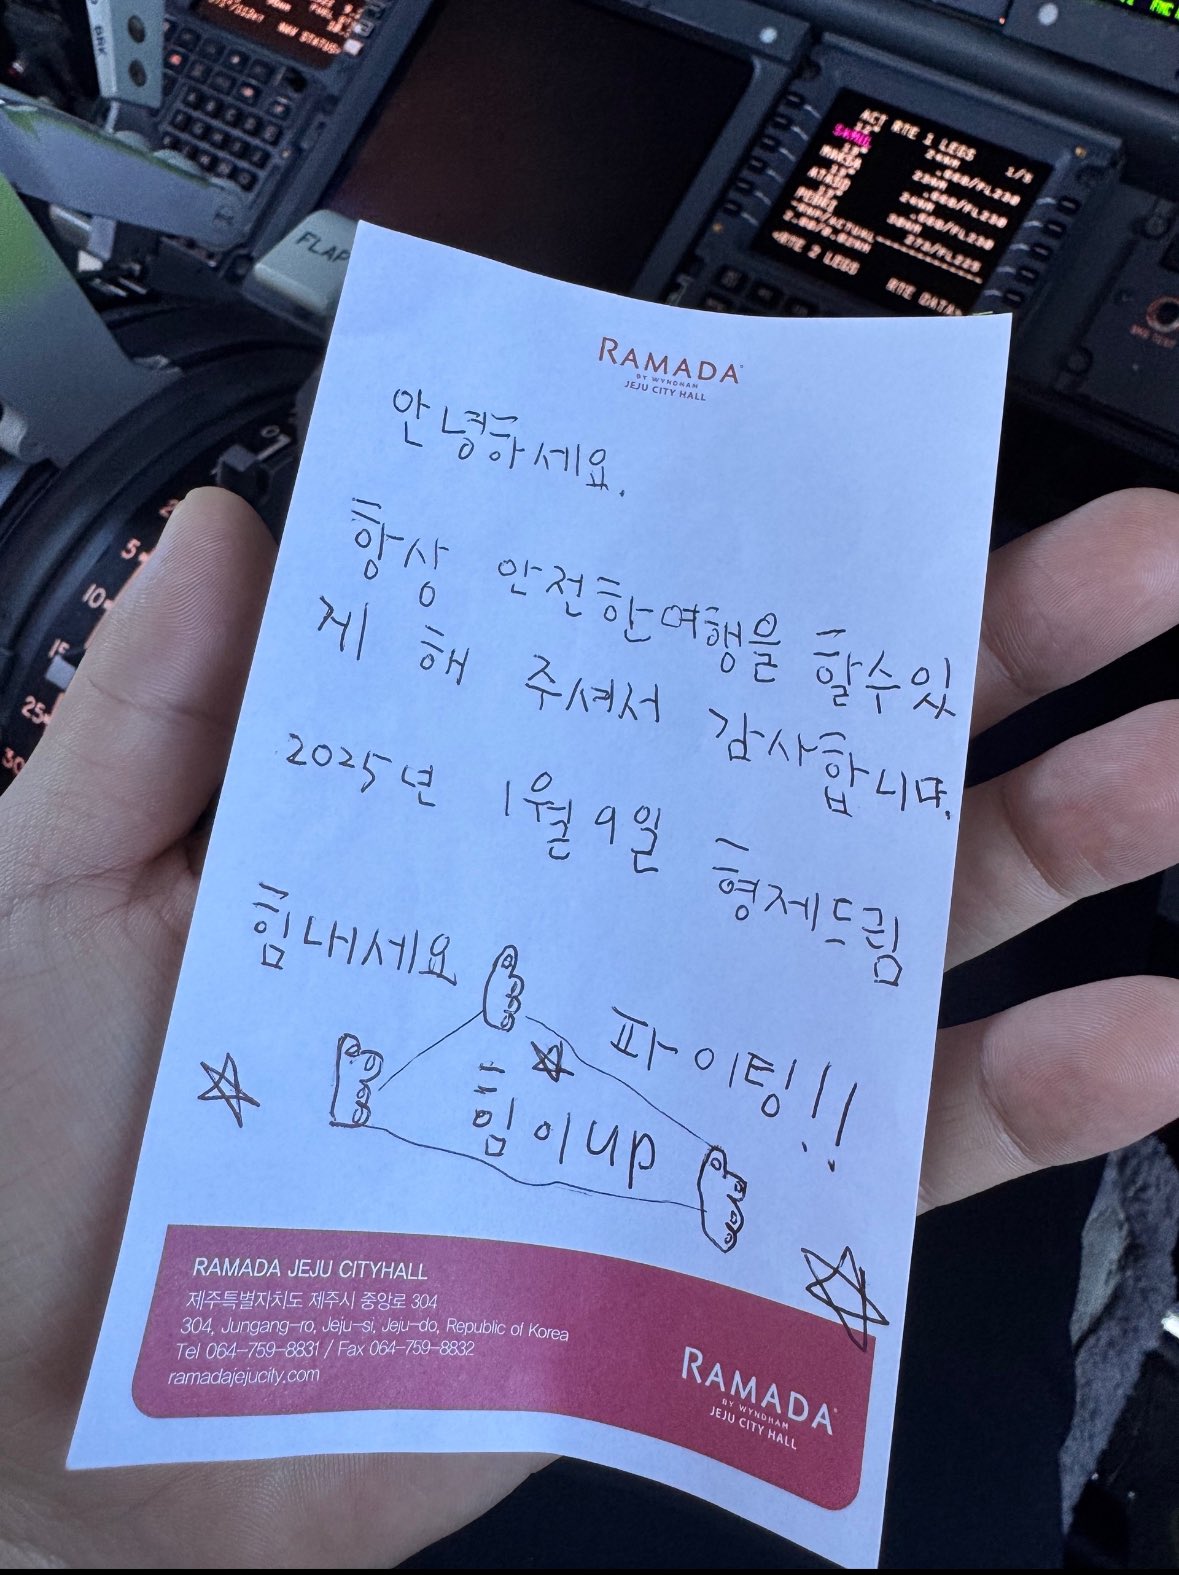 BRK
NAV STATUS
FLAP
5
10
15
25
30
ACT RTE 1 LEGS 1/3
<RTE 2 LEGS RTE DATA>
RAMADA
BY WYNDHAM
JEJU CITY HALL
안녕하세요.
항상 안전한여행을 할수있
게 해 주셔서 감사합니다.
2025년 1월 9일 형제드림
힘내세요
파이팅!!
힘이up
RAMADA JEJU CITYHALL
제주특별자치도 제주시 중앙로 304
304, Jungang-ro, Jeju-si, Jeju-do, Republic of Korea
Tel 064-759-8831 / Fax 064-759-8832
ramadajejucity.com
RAMADA
BY WYNDHAM
JEJU CITY HALL